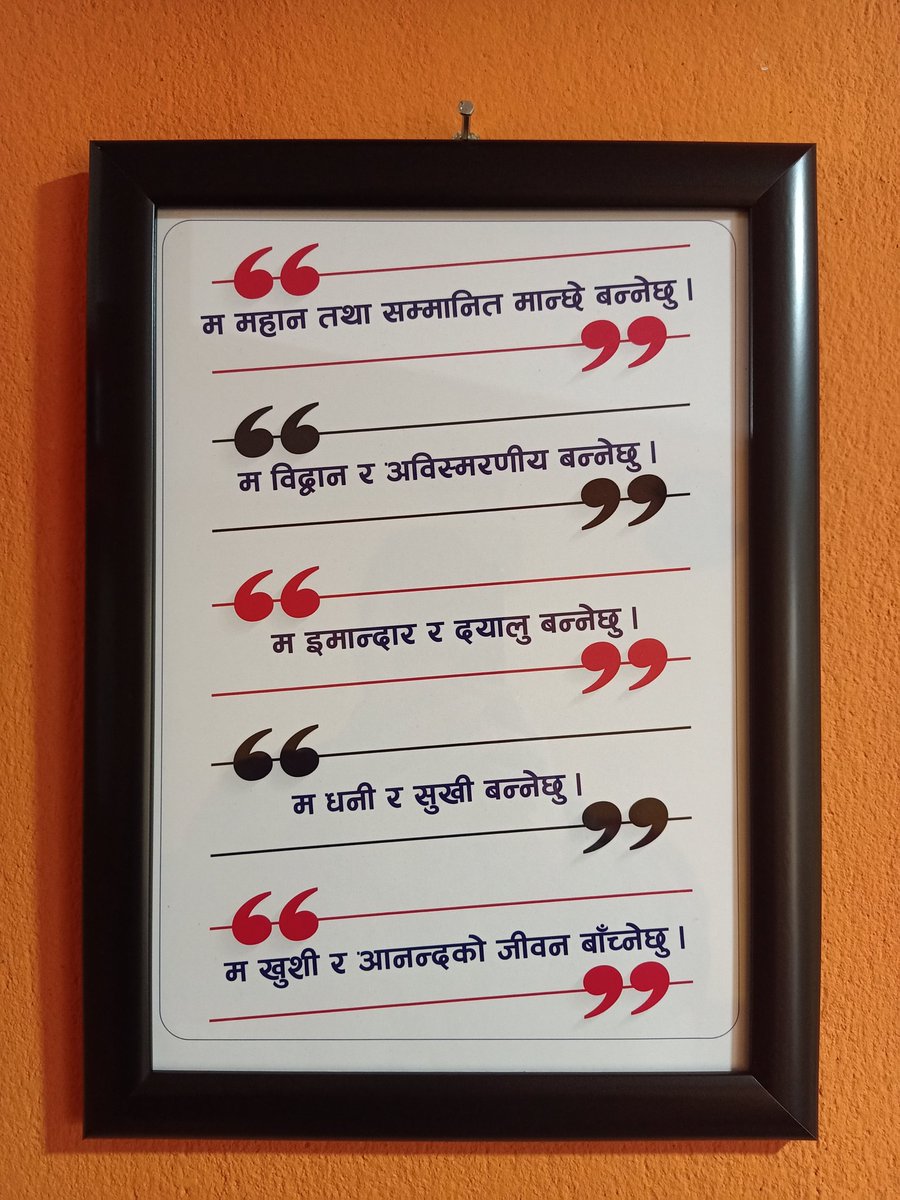 म महान तथा सम्मानित मान्छे बन्नेछु ।
म विद्वान र अविस्मरणीय बन्नेछु ।
म इमान्दार र दयालु बन्नेछु ।
म धनी र सुखी बन्नेछु ।
म खुशी र आनन्दको जीवन बाँच्नेछु ।